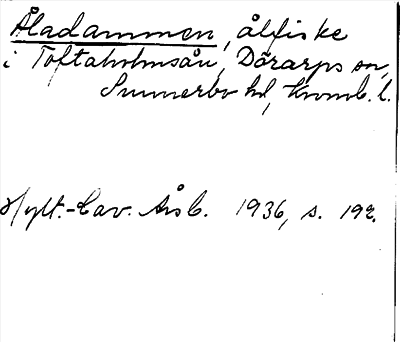 Åladammen, ålfiske
i Toftaholmsån, Dörarps sn,
Sunnerbo hd, Kronob. l.
Hylt.-Cav. Årsb. 1936, s. 192.